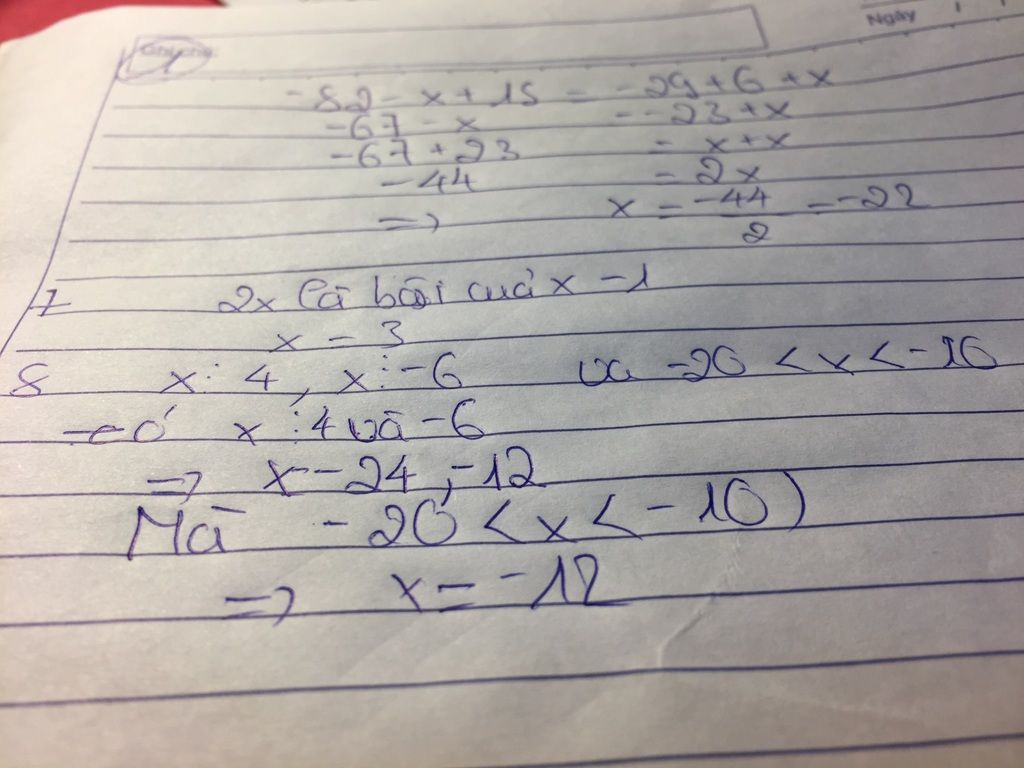 Ngày
-82 - x + 15 = -29 + 6 + x
-67 - x = -23 + x
-67 + 23 = x + x
-44 = 2x
=> x = -44/2 = -22
7 2x là bội của x - 1
x = 3
8 x ⋮ 4, x ⋮ -6 và -20 < x < -10
có x ⋮ 4 và -6
=> x = -24, -12
Mà -20 < x < -10)
=> x = -12